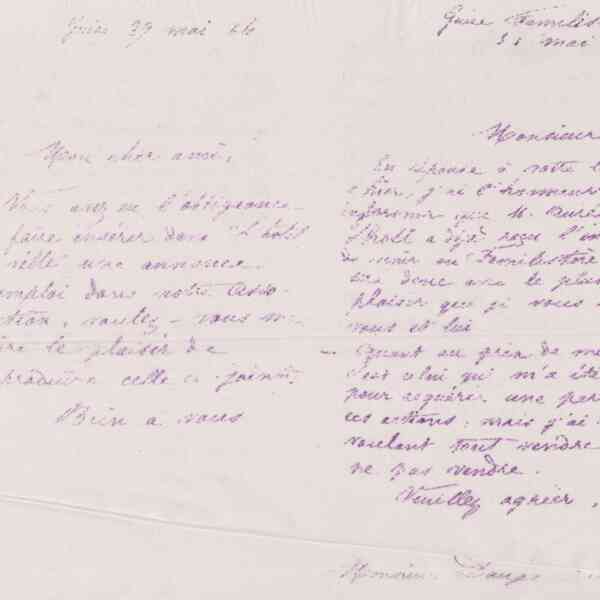 Guise 29 mai 86
Mon cher ami,
Vous avez eu l'obligeance
faire insérer dans "L'hôtel
une annonce
emploi dans votre Asso-
ction, voulez-vous m
ire le plaisir de
produire celle ci-jointe
Bien a vous
Guise Familis
31 mai
Monsieur
En réponse à votre l
d'hier, j'ai l'honneur
informer que M. Auré
a déjà reçu l'in
de venir au Familistère
donc avec le plus
plaisir que je vous
vous et lui
Quant au prix de me
c'est celui qui m'a été
pour acquérir une par
ces actions; mais j'ai
voulant tout vendre
ne pas vendre.
Veuillez agréer,
Monsieur